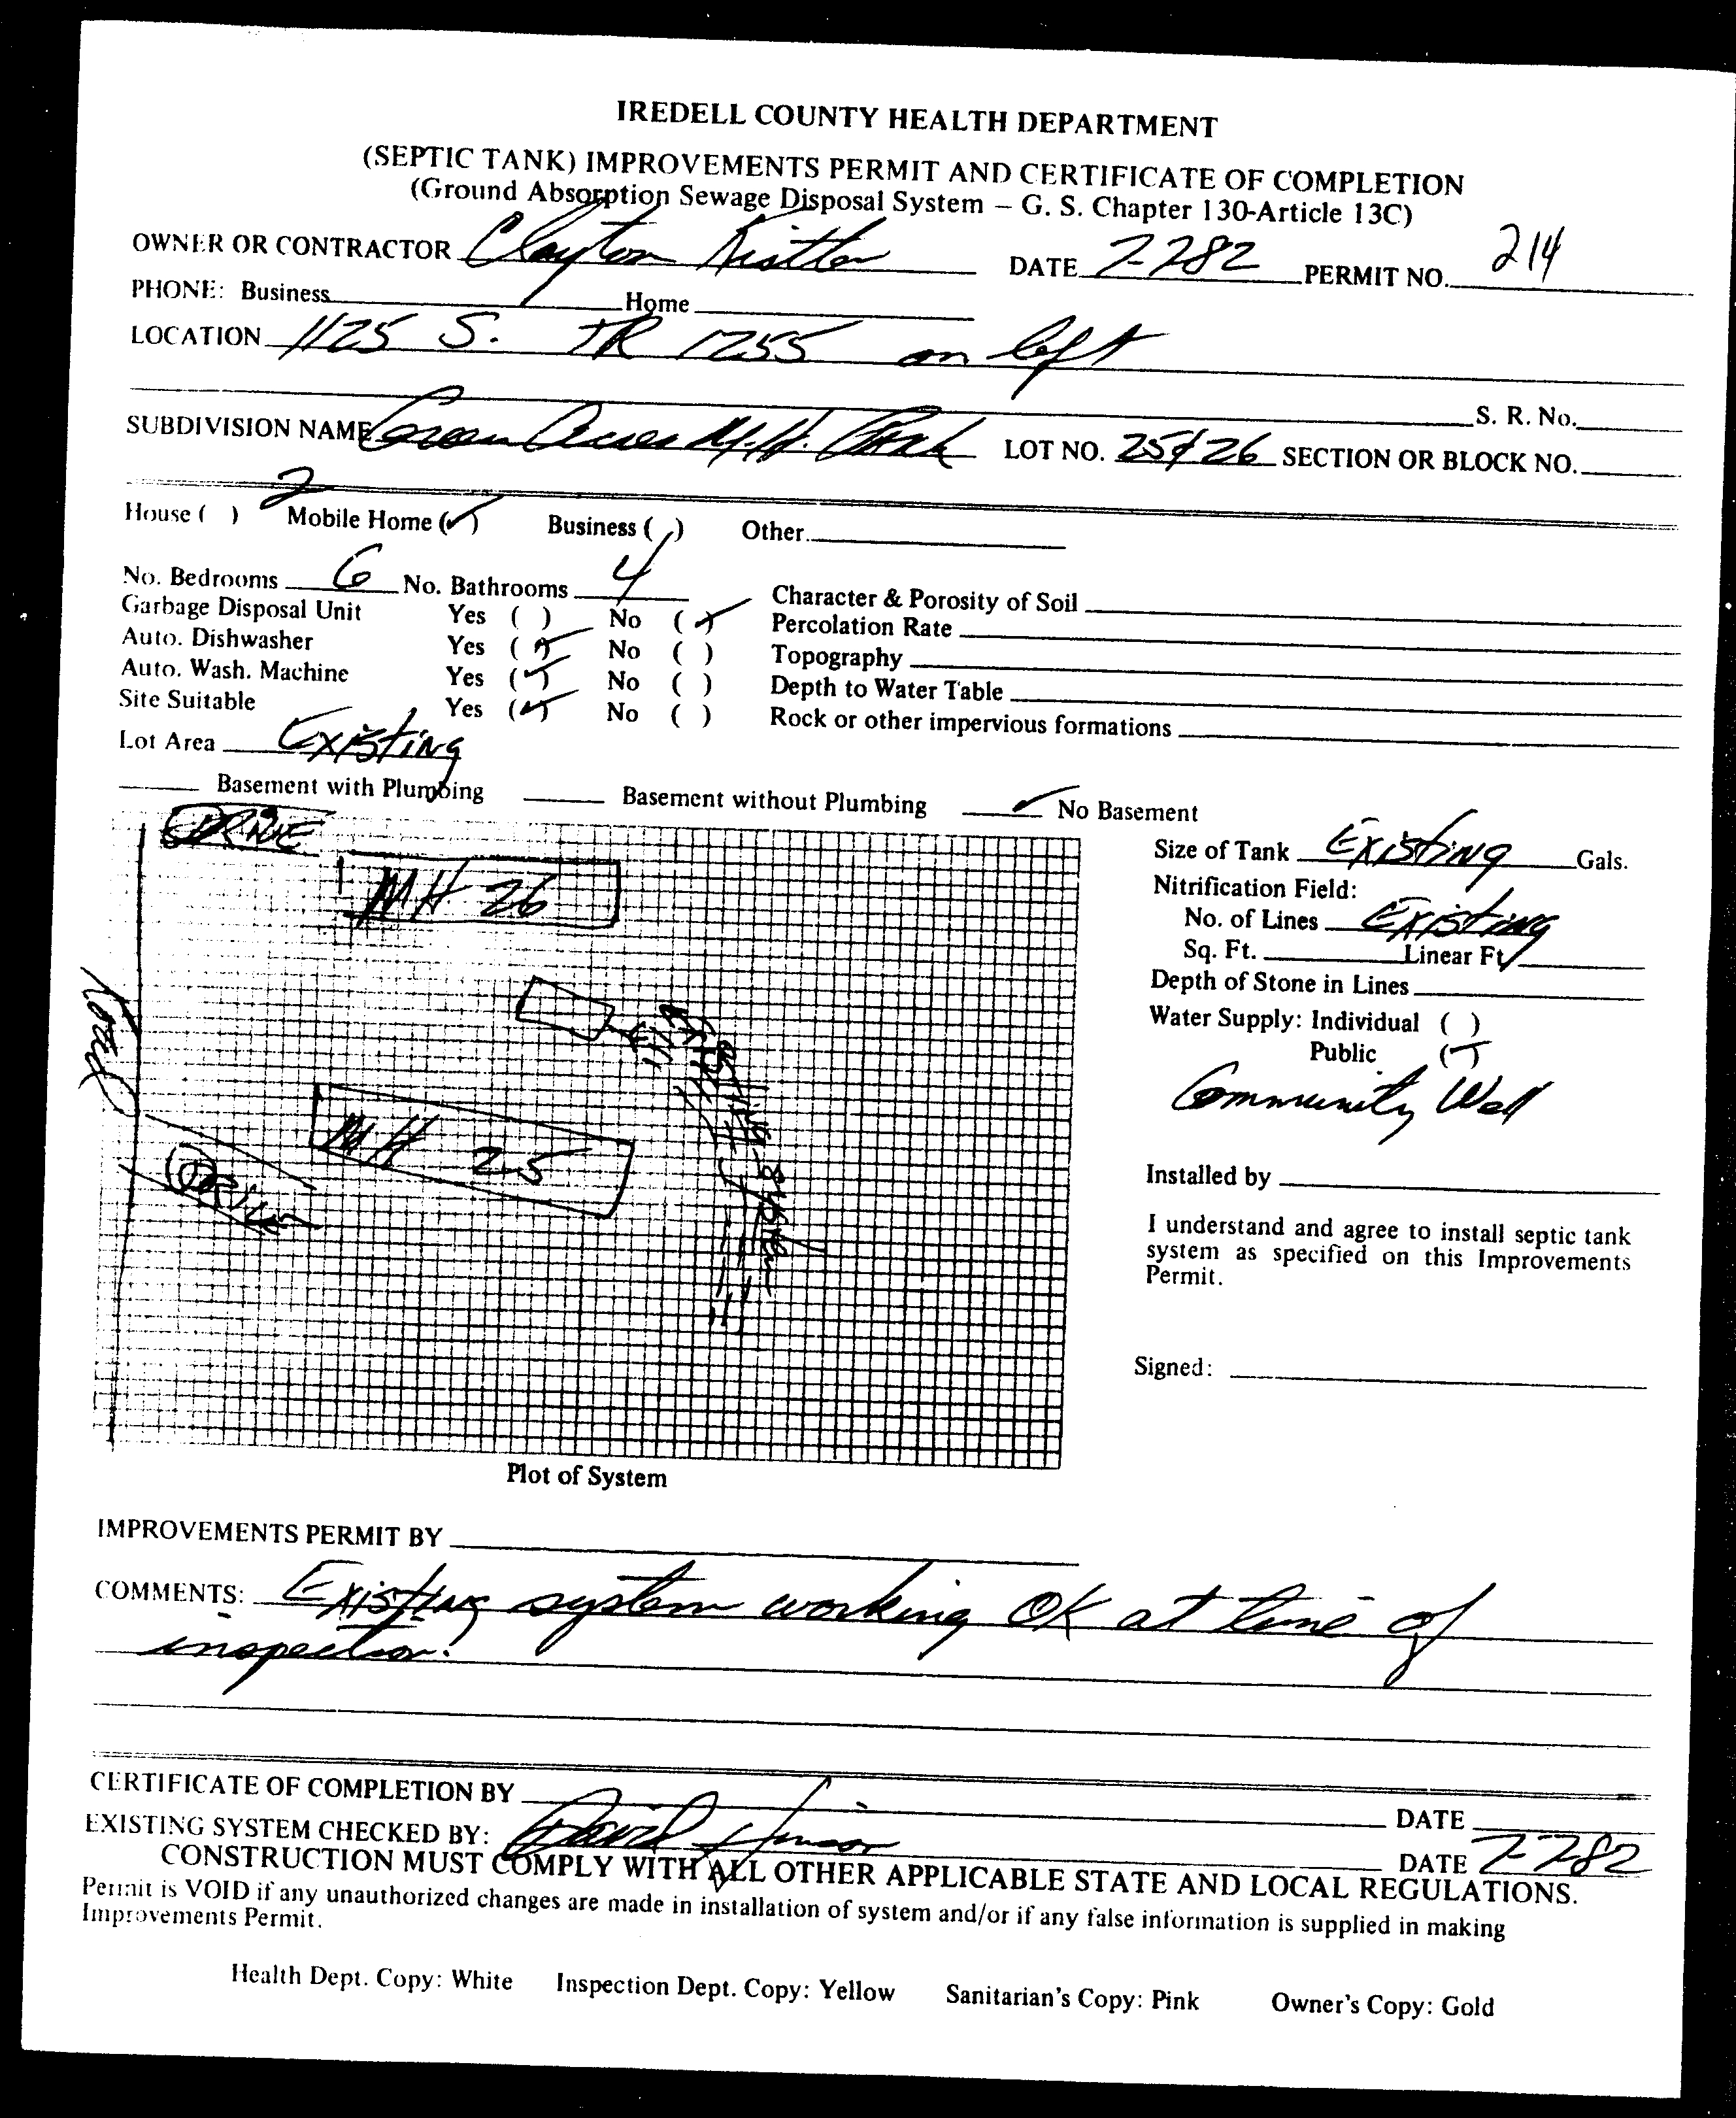 IREDELL COUNTY HEALTH DEPARTMENT
(SEPTIC TANK) IMPROVEMENTS PERMIT AND CERTIFICATE OF COMPLETION
(Ground Absorption Sewage Disposal System – G. S. Chapter 130-Article 13C)
OWNER OR CONTRACTOR Clayton Kistler DATE 7-782 PERMIT NO. 214
PHONE: Business Home
LOCATION 1125 S. TR 1255 on left
S. R. No.
SUBDIVISION NAME Green Acres M.H. Park LOT NO. 25 & 26 SECTION OR BLOCK NO.
House ( ) 2 Mobile Home (✓) Business ( ) Other
No. Bedrooms 6 No. Bathrooms 4 Character & Porosity of Soil
Garbage Disposal Unit Yes ( ) No (✓) Percolation Rate
Auto. Dishwasher Yes (✓) No ( ) Topography
Auto. Wash. Machine Yes (✓) No ( ) Depth to Water Table
Site Suitable Yes (✓) No ( ) Rock or other impervious formations
Lot Area Existing
Basement with Plumbing Basement without Plumbing ✓ No Basement
DRIVE
MH 26
Road
MH 25
Drive
Existing System
Size of Tank Existing Gals.
Nitrification Field:
No. of Lines Existing
Sq. Ft. Linear Ft.
Depth of Stone in Lines
Water Supply: Individual ( )
Public (✓)
Community Well
Installed by
I understand and agree to install septic tank
system as specified on this Improvements
Permit.
Signed:
Plot of System
IMPROVEMENTS PERMIT BY
COMMENTS: Existing system working OK at time of
inspection.
CERTIFICATE OF COMPLETION BY DATE
EXISTING SYSTEM CHECKED BY: David DATE 7-782
CONSTRUCTION MUST COMPLY WITH ALL OTHER APPLICABLE STATE AND LOCAL REGULATIONS.
Permit is VOID if any unauthorized changes are made in installation of system and/or if any false information is supplied in making
Improvements Permit.
Health Dept. Copy: White Inspection Dept. Copy: Yellow Sanitarian's Copy: Pink Owner's Copy: Gold